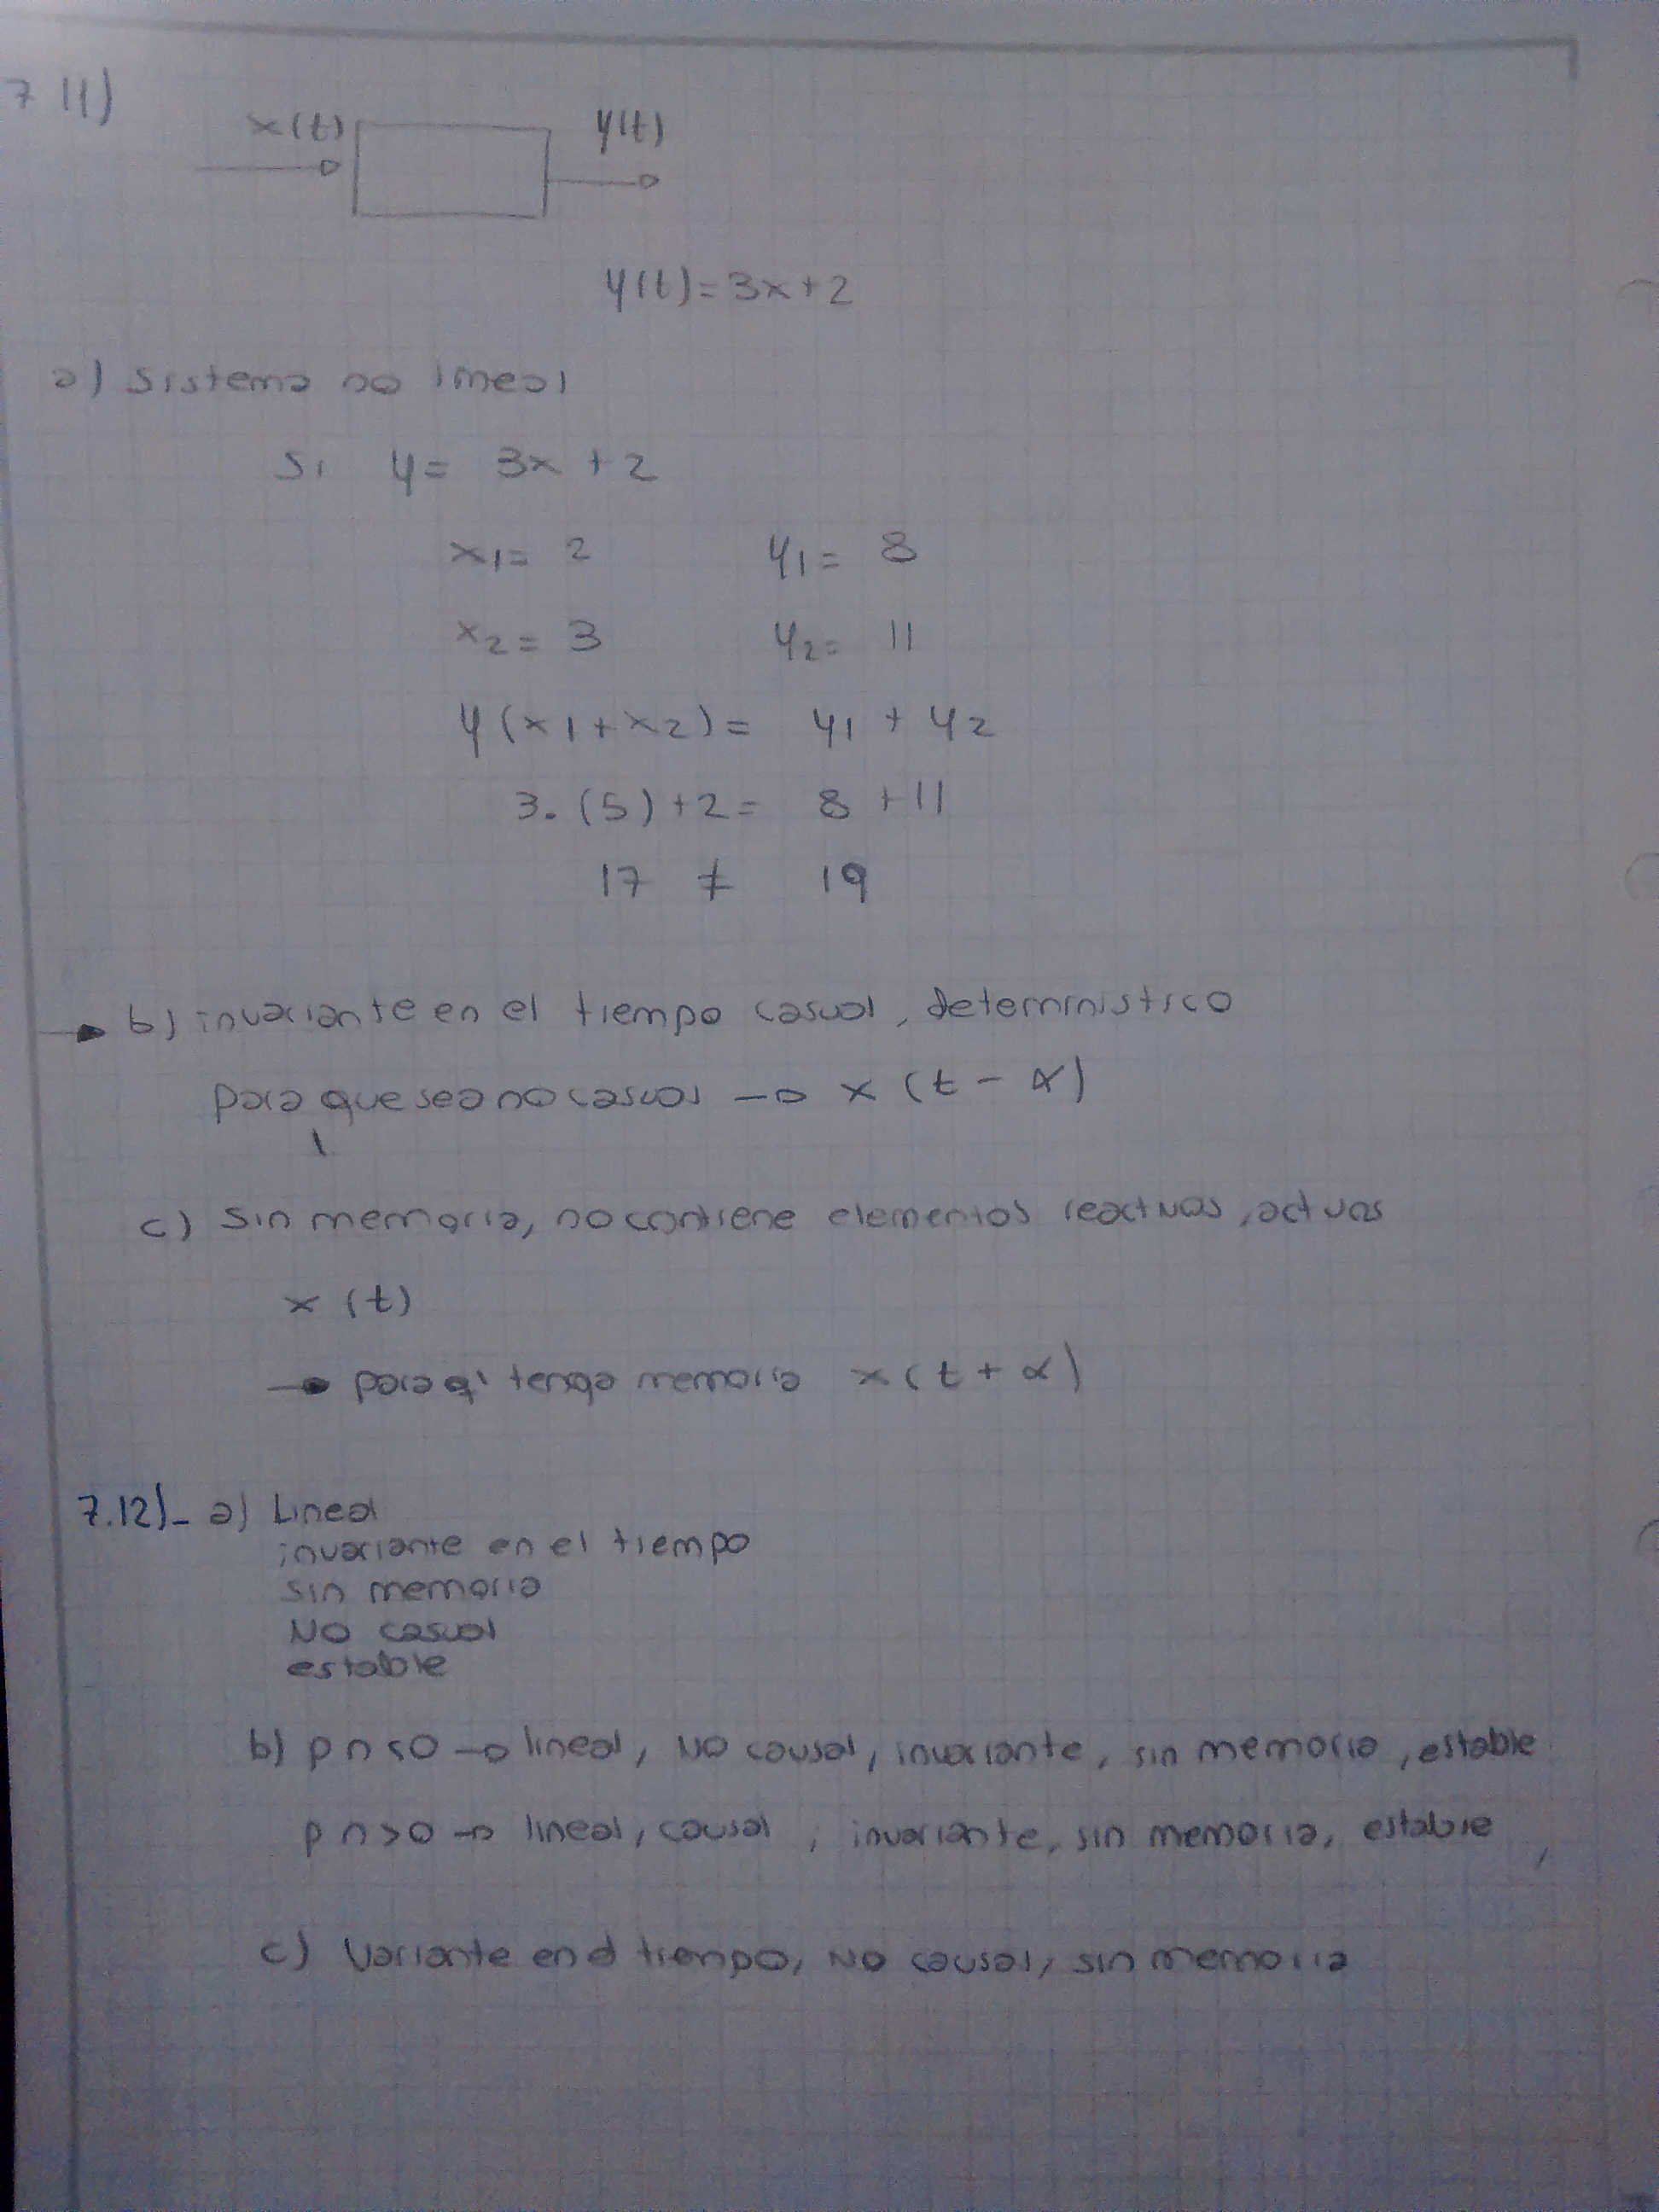 7 11)
x(t) y(t)
y(t)=3x+2
a) sistema no lineal
Si y= 3x +2
x1= 2 y1= 8
x2= 3 y2= 11
y(x1+x2)= y1 + y2
3.(5)+2= 8 +11
17 ≠ 19
b) invariante en el tiempo casual, deterministico
para que sea no casual → x(t-α)
c) Sin memoria, no contiene elementos reactivos, activos
x(t)
→ para q' tenga memoria x(t+α)
7.12)- a) Lineal
invariante en el tiempo
sin memoria
No casual
estable
b) p n<0 → lineal, No causal, invariante, sin memoria, estable
p n>0 → lineal, causal, invariante, sin memoria, estable
c) Variante en el tiempo, No causal, sin memoria